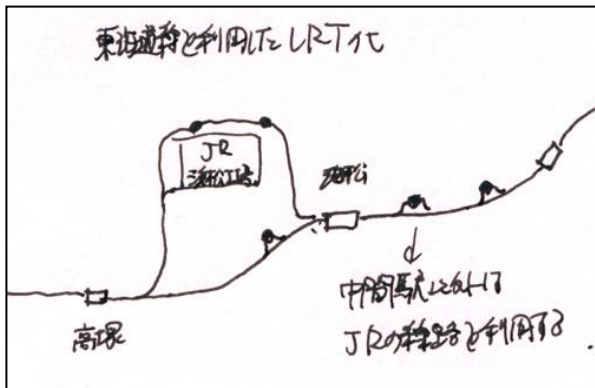 東海道線を利用したLRT化
JR
浜松工場
浜松
高塚
中間駅以外は
JRの線路を利用する